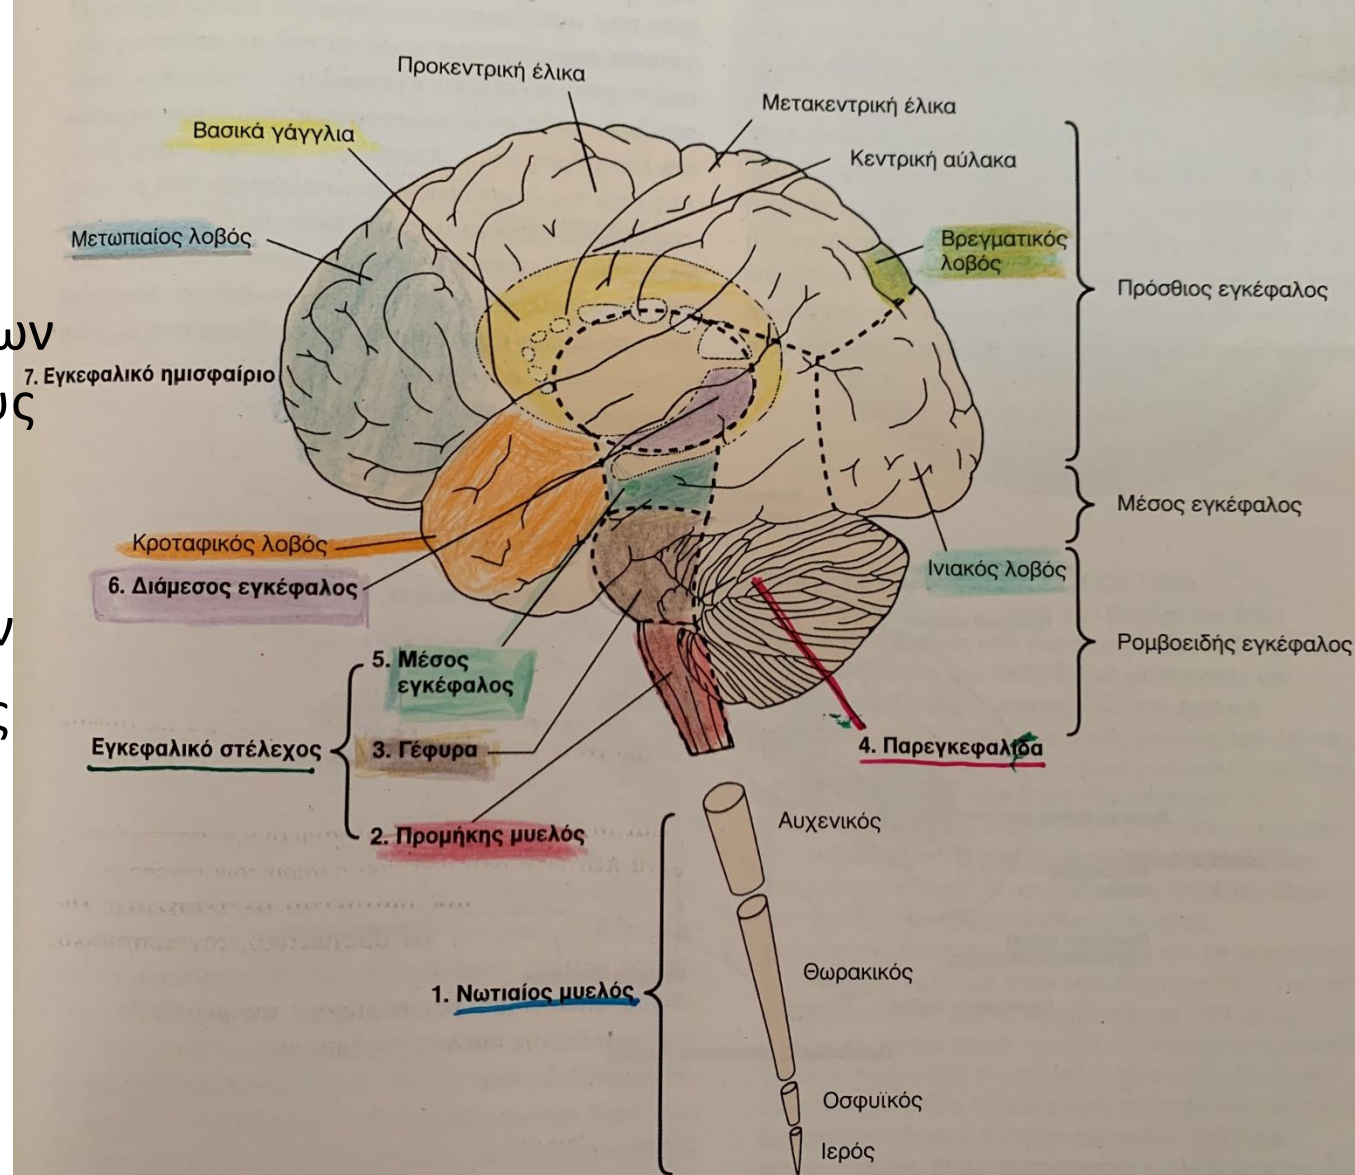 Προκεντρική έλικα
Μετακεντρική έλικα
Βασικά γάγγλια
Κεντρική αύλακα
Μετωπιαίος λοβός
Βρεγματικός
λοβός
Πρόσθιος εγκέφαλος
ων
7. Εγκεφαλικό ημισφαίριο
υς
Μέσος εγκέφαλος
Κροταφικός λοβός
Ινιακός λοβός
6. Διάμεσος εγκέφαλος
ν
Ρομβοειδής εγκέφαλος
5. Μέσος
εγκέφαλος
ς
Εγκεφαλικό στέλεχος
3. Γέφυρα
4. Παρεγκεφαλίδα
2. Προμήκης μυελός
Αυχενικός
Θωρακικός
1. Νωτιαίος μυελός
Οσφυϊκός
Ιερός